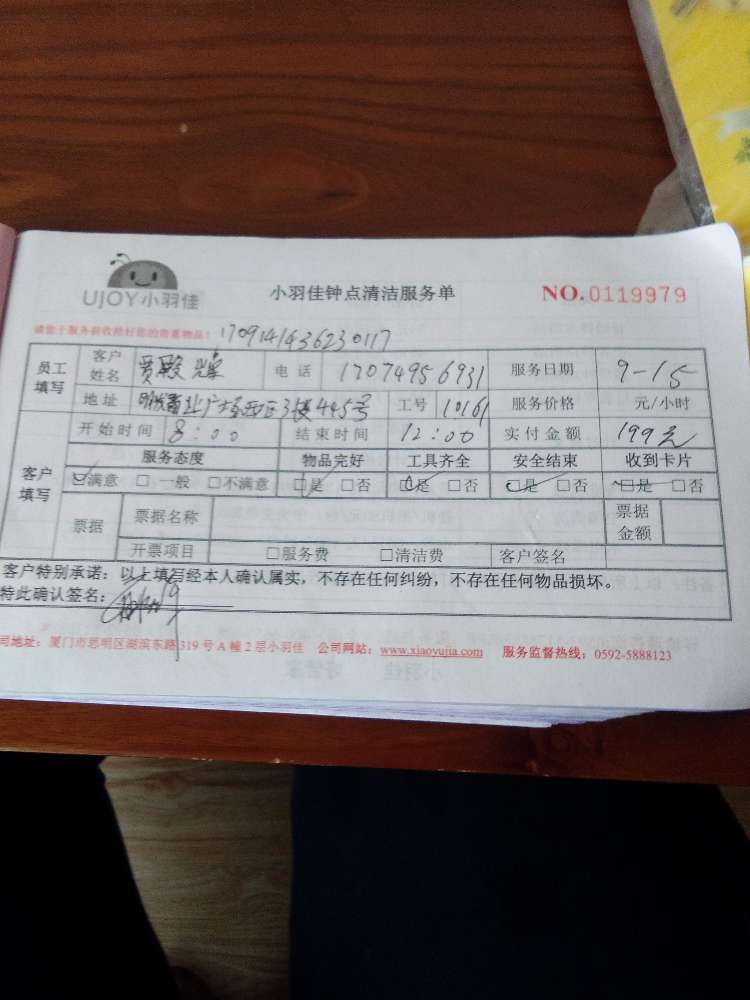 UJOY小羽佳
小羽佳钟点清洁服务单
NO.0119979
请您于服务前收拾好您的贵重物品!
1709141436230117
员工填写 客户姓名 贾殿 电话 17074956931 服务日期 9-15
地址 业广场西区3楼445号 工号 10161 服务价格 元/小时
客户填写 开始时间 8:00 结束时间 12:00 实付金额 199元
服务态度 物品完好 工具齐全 安全结束 收到卡片
☑满意 □一般 □不满意 ☑是 □否 ☑是 □否 ☑是 □否 ☑是 □否
票据 票据名称 票据金额
开票项目 □服务费 □清洁费 客户签名
客户特别承诺:以上填写经本人确认属实,不存在任何纠纷,不存在任何物品损坏。
特此确认签名:
司地址:厦门市思明区湖滨东路319号A幢2层小羽佳 公司网站:www.xiaoyujia.com 服务监督热线:0592-5888123